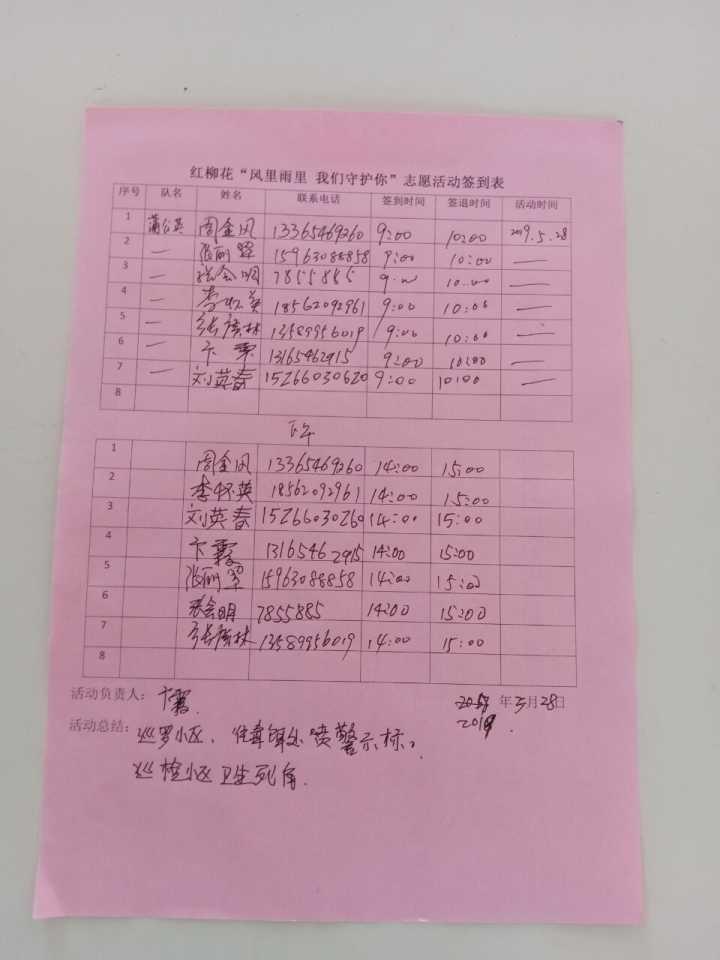 红柳花“风里雨里 我们守护你”志愿活动签到表
序号 队名 姓名 联系电话 签到时间 签退时间 活动时间
1 蒲公英 周金凤 13365469260 9:00 10:00 2019.5.28
2 — 张丽翠 15963088858 9:00 10:00 —
3 — 张会明 7855885 9:00 10:00 —
4 — 李怀英 18562092961 9:00 10:00 —
5 — 张广林 13589956019 9:00 10:00 —
6 — 卞霞 13165462915 9:00 10:00 —
7 — 刘英春 15266030620 9:00 10:00 —
8
下午
1 周金凤 13365469260 14:00 15:00
2 李怀英 18562092961 14:00 15:00
3 刘英春 15266030260 14:00 15:00
4 卞霞 13165462915 14:00 15:00
5 张丽翠 15963088858 14:00 15:00
6 张会明 7855885 14:00 15:00
7 张广林 13589956019 14:00 15:00
8
活动负责人: 卞霞. 年5月28日
2019.
活动总结: 巡罗小区, 喷警示标,
巡检小区卫生死角.